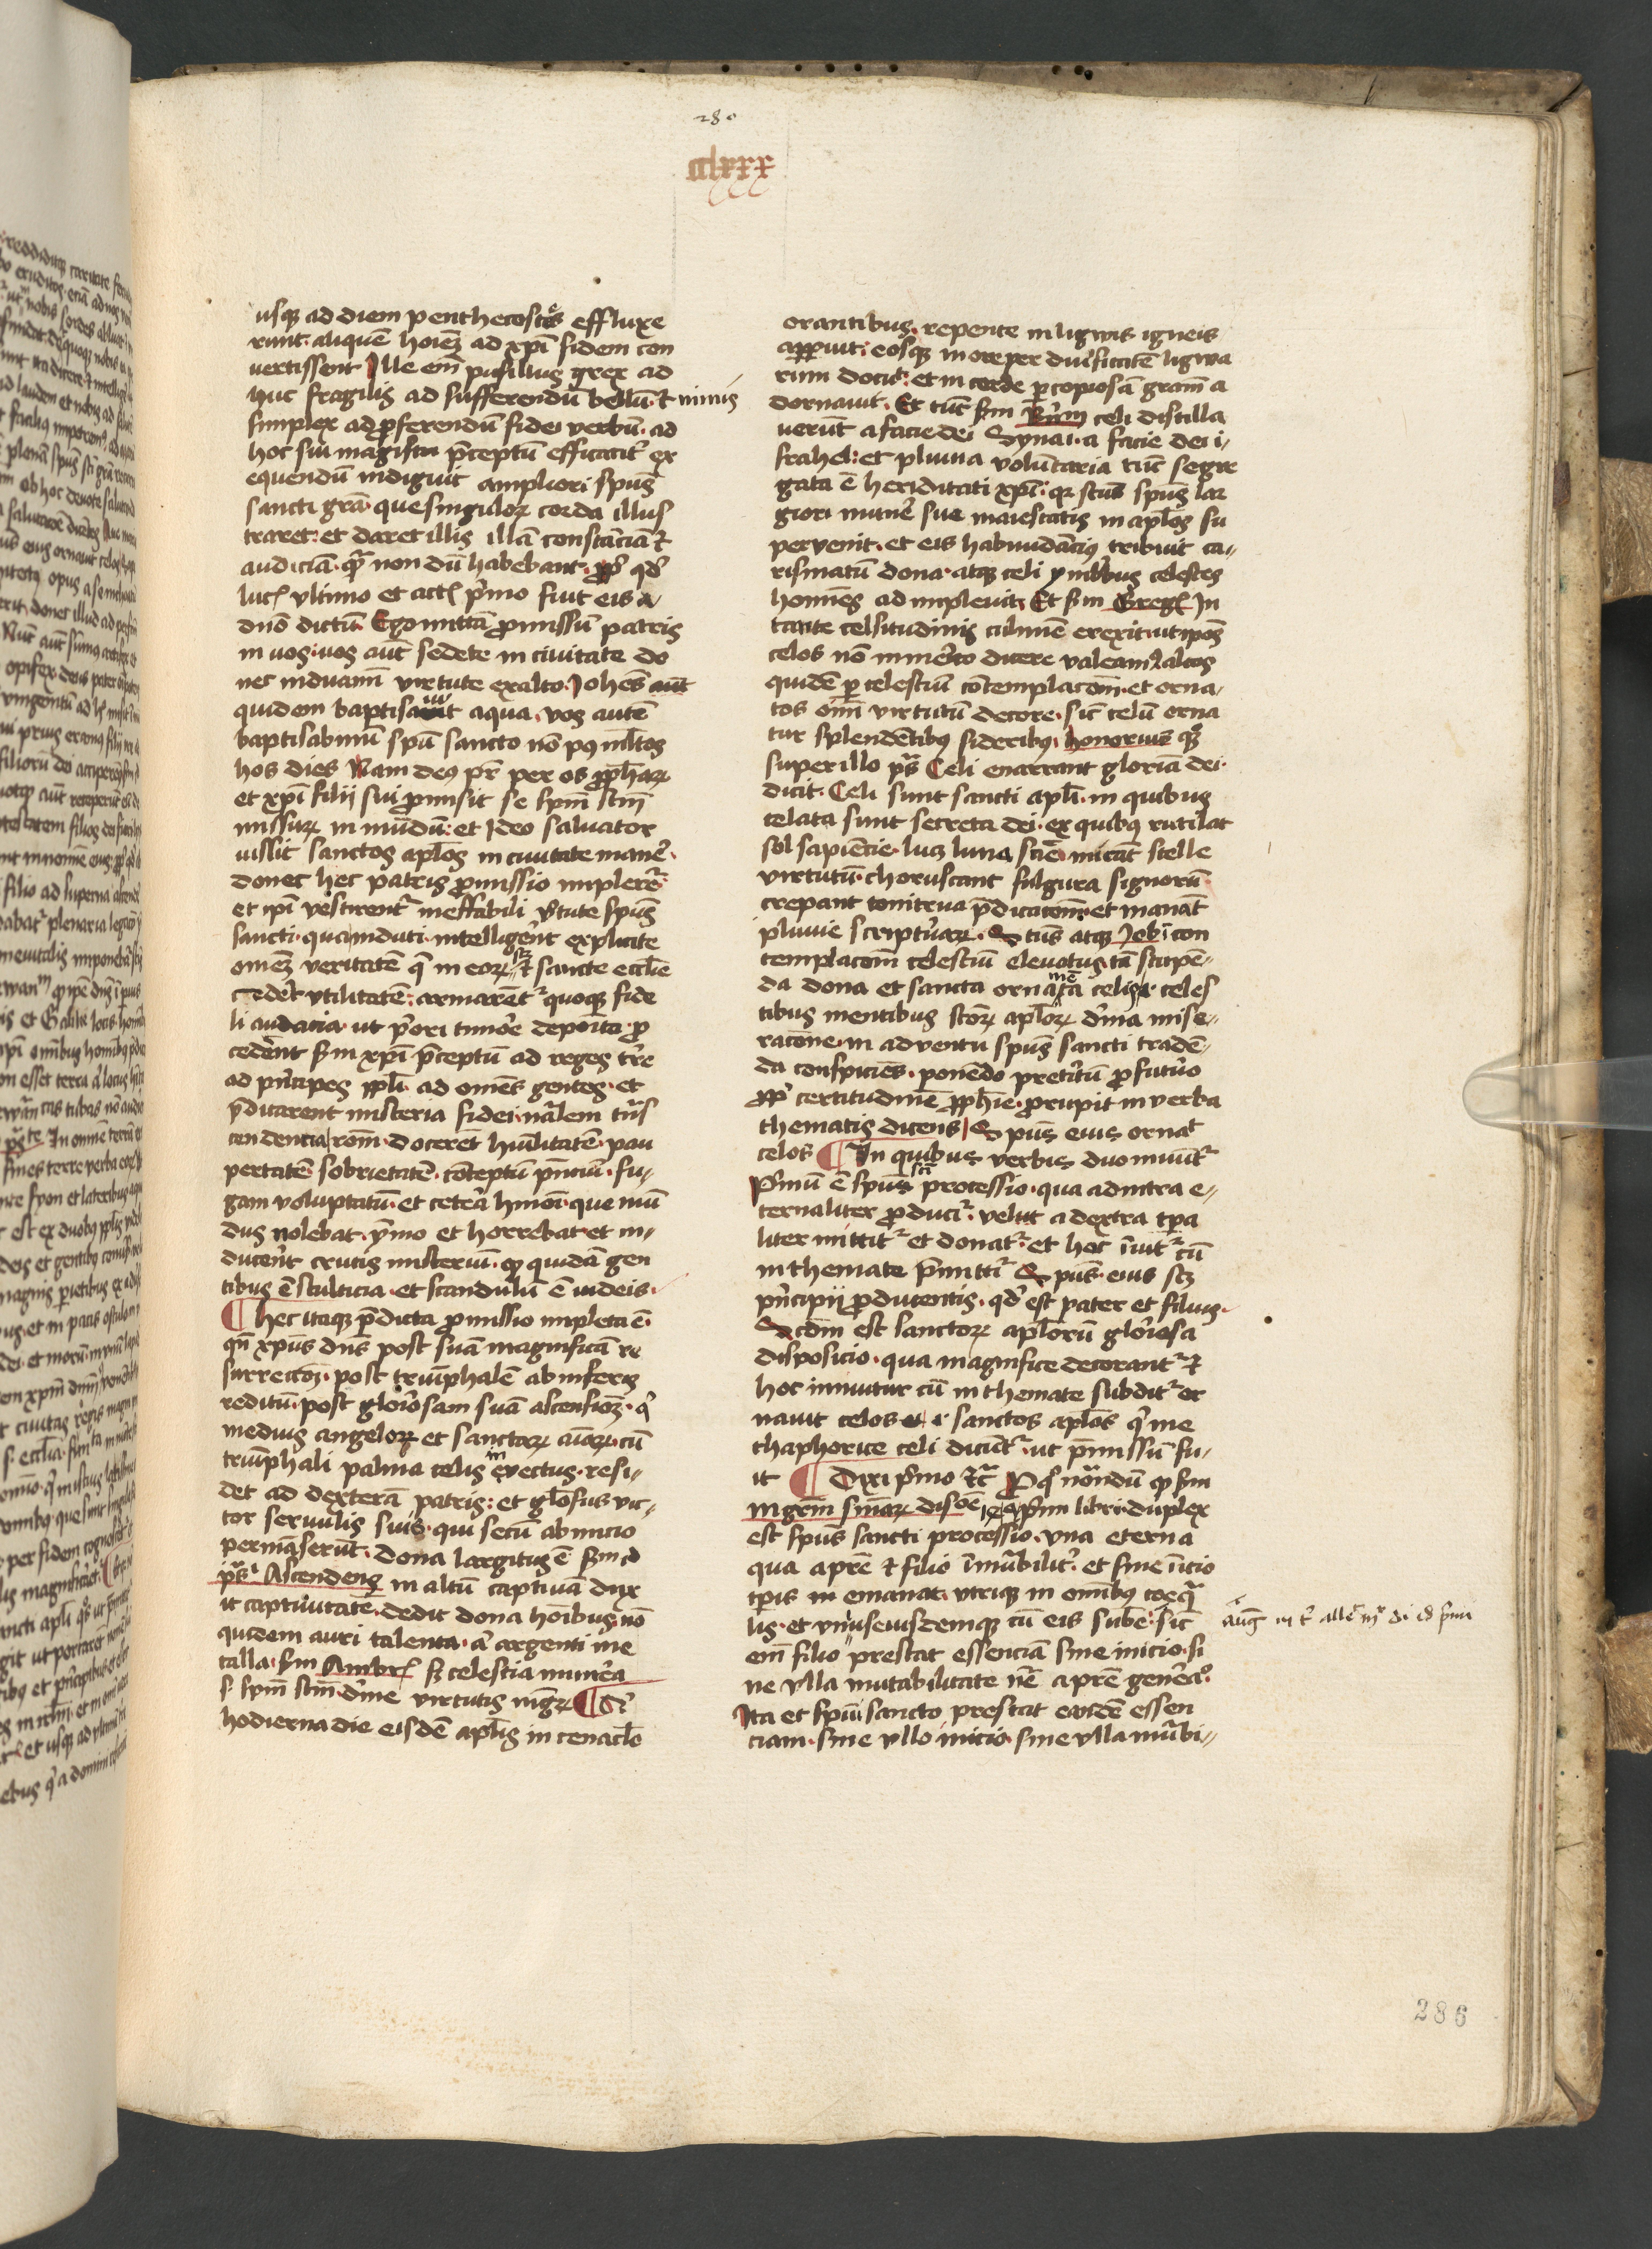 280
cclxxx
usqȝ ad diem penthecostes effluxe
runt· aliquē hoīeȝ ad xpī fidem con
vertissent Ille em̄ pusillus grex ad
huc fragilis ad sufferendū bellū· et minus
simplex ad ꝓferendū fidei verbū· ad
hoc sui magistri p̄ceptū efficacit᷑ ex
equendū indiguit ampliori spūs
sancti grā· que singuloꝝ corda illus
traret· et daret illis illā constanciā et
audiciā· quā non dū habebant· ꝓpt᷑ qd᷑
luc̄ ultimo et act̄ p̄mo fuit eis a
dn̄o dictū· Ego mittā ꝓmissū patris
in vos· vos aūt sedete in civitate do
nec induamī virtute ex alto· Iohēs aūt
quidem baptisavit aqua· vos autē
baptisabimī spū sancto nō pꝯ mltos
hos dies Nam deus pr̄ per os ꝓphaꝝ
et xpī filii sui ꝓmisit se spm̄ scm̄
missuꝝ in mūdū· et ideo salvator
iussit sanctos apl̄os in civitate manē·
donec hec patris ꝓmissio implere᷑t
et ipī vestirent᷑ ineffabili v̄tute spūs
sancti· qua induti· intelligēnt explicite
omeȝ veritatē q̄ in eoꝝ scȝ et sancte eccl̄ie
cedēt utilitatē· armarēt᷑ quoqȝ fide
li audacia· ut p̄ori timore deposito· ꝓ
cedēnt scd̄m xpī p̄ceptū ad reges tr̄e
ad p̄ncipes ppl̄i· ad omēs gentes· et
p̄dicarent misteria fidei· nālem trās
cendencia rōm· docerēt humilitatē· pau
pertatē sobrietatē· cōteptū p̄nciū· fu-
gam voluptatū· et cetēa hmōi· que mū
dus nolebat· ymo et horrebat· et in-
ducēnt crucis misteriū· qꝫ quidā gen
tibus ē stulticia· et scandulū ē iudeis·
¶ hec itaqȝ p̄dicta ꝓmissio impleta ē·
qn̄ xpūs dn̄s post suā magnificā re
surrectōȝ· post triūphalē ab inferis
reditū· post gloriosam suā ascensionȝ· q̄
medius angeloꝝ et sanctaꝝ aīaꝝ· cū
triūphali palma celis invectus· resi-
det ad dexterā patris· et gl̄osus vic-
tor servulis suis· qui secū ab inicio
permāserūt· dona largitus ē scd̄m id
ps̄ Ascendens in altū captivā dux
it captivitatē· dedit dona hōibus· nō
quidem auri talenta· ā argenti me
talla· scd̄m Ambr̄ sȝ celestia munēa
s· spm̄ scm̄· dīne virtutis
hodierna die eisdē apl̄is in cenacl̄o
orantibus· repente in ligwis igneis
apparuit· eosqȝ in ore per divsitatē ligwa
rum docuit· et in corde ꝑ copiosā grām a
dornavit· Et tūc scd̄m celi distilla
verūt a facie dei Synai· a facie dei i-
srahel· et pluvia volūtaria tūc segre
gata ē hereditati xpī· qꝛ scūs spūs lar
giori munē sue maiestatis in apl̄os su
pervenit· et eis habundācius tribuit ca-
rismatū dona· atqȝ celi ymbribus celestes
homīes ad implevit· Et scd̄m Greḡ In
tante celsitudinis culmē erexit· ut ipōs
celos nō immerito dicere valeamꝰ· altos
quidē ꝑ celestiū cōtemplacōm· et orna-
tos om̄i virtutū decore· sic celū orna
tur splendētibus sideribus· honorius qꝫ
super illo ps̄ Celi enarrant gloriā dei·
dicit· Celi sunt sancti apl̄i· in quibus
celata sunt secreta dei· ex quibus rutilat
sol sapiēcie· lucȝ luna scīe· micāt stelle
virtutū· choruscant fulgura signorū
crepant tonitrua p̄dicacōnū· et manāt
pluvie scripturaꝝ· Et tūc atqȝ Iob ī con
templacōm celestiū elevatus· tā stupē-
da dona et sancta ornamēta celis· celes
tibus mentibus scōꝝ apl̄oꝝ dīna mise-
racōne· in adventu spūs sancti tradē-
da conspiciēs· ponendo preteritū ꝓ futuro
ꝓpt᷑ certitudinē ꝓphīe· ꝓrupit in verba
thematis dicens Spūs eius ornāt
celos ¶ In quibus verbis duo innuūt᷑
P̄mū ē spūs sci processio· qua ad intra e-
ternaliter ꝓducit᷑· velut a dextra tp̄a
liter mittit᷑ et donat᷑· et hoc īnuit᷑ cū
in themate p̄mittit᷑ Spūs· eius scȝ
p̄ncipii ꝓducentis· qd᷑ est pater et filius·
Scd̄m est sanctoꝝ apl̄orū gloriosa
disposicio· qua magnifice decorant᷑ et
hoc innuitur cū in themate subdit᷑ or
navit celos· sanctos apl̄os q̄ me
thaphorice celi dicūt᷑· ut p̄missū fu-
it ¶ Dixi p̄mo etc̄ Pro q̄ nōndū qꝫ scd̄m
mgrm̄ sniaꝝ disōe p̄mi libri· duplex
est spūs sancti processio· una eterna
qua a pr̄e et filio īmutābilit᷑· et sine īicio
tp̄is emanat· utriqȝ in omībus coequā
lis· et unius eiusdemqȝ cū eis sube· sic
em̄ filio prestat essenciā sine inicio· si
ne ulla mutabilitate nc̄ a pr̄e genēcō·
Ita et spūi sancto prestat eandē essen
ciam· sine ullo inicio· sine ulla mutābi-
286